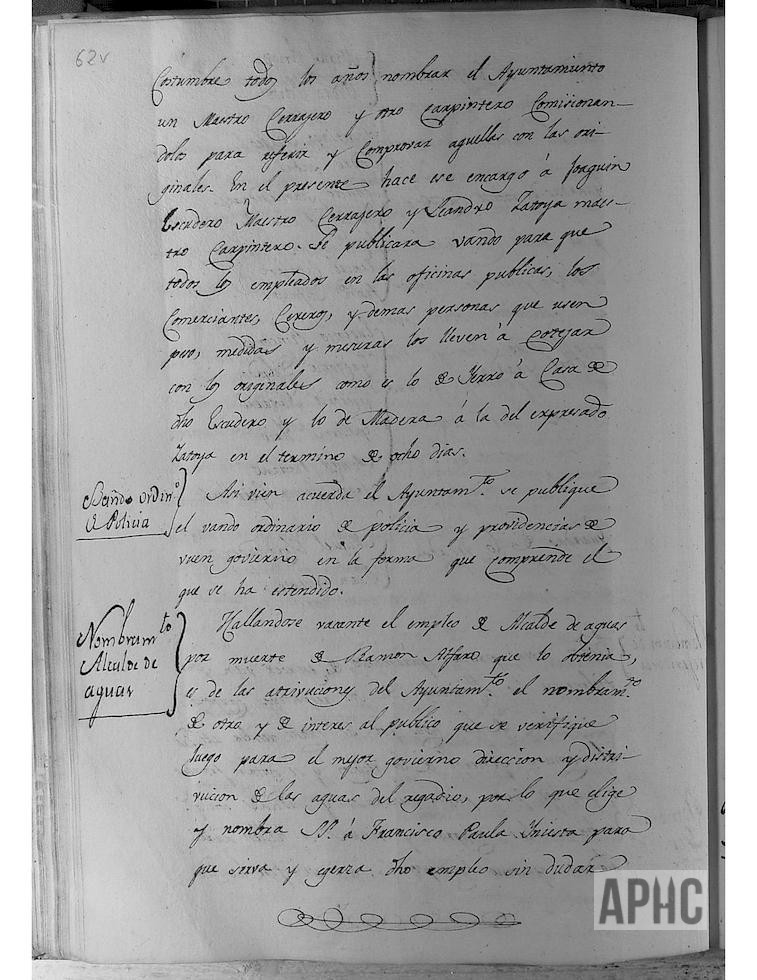 62v
Costumbre todos los años nombrar el Ayuntamiento
un Maestro Cerrajero y otro Carpintero Comisionan-
dolos para referir y Comprovar aquellas con las ori-
ginales. En el presente hace ese encargo á Joaquin
Escudero Maestro Cerrajero y Leandro Zatoya maes-
tro Carpintero. Se publicara vando para que
todos los empleados en las oficinas publicas, los
Comerciantes, Cereros, y demas personas que usen
peso, medidas y mesuras los lleven á cotejar
con los originales como es lo de Yerro á Casa de
dho Escudero y lo de Madera á la del expresado
Zatoya en el termino de ocho dias.
Bando ordin.o
de Policia
Asi vien acuerda el Ayuntam.to se publique
el vando ordinario de policia y providencias de
vuen govierno en la forma que comprende el
que se ha estendido.
Nombram.to
Alcalde de
aguas
Hallandose vacante el empleo de Alcalde de aguas
por muerte de Ramon Alfaro que lo obtenia,
es de las atrivuciones del Ayuntam.to el nombram.to
de otro y de interes al publico que se verifique
luego para el mejor govierno direccion y distri-
vucion de las aguas del regadio, por lo que elige
y nombra á Francisco Paula Yniesta para
que sirva y egerza dho empleo sin dudar
APHC